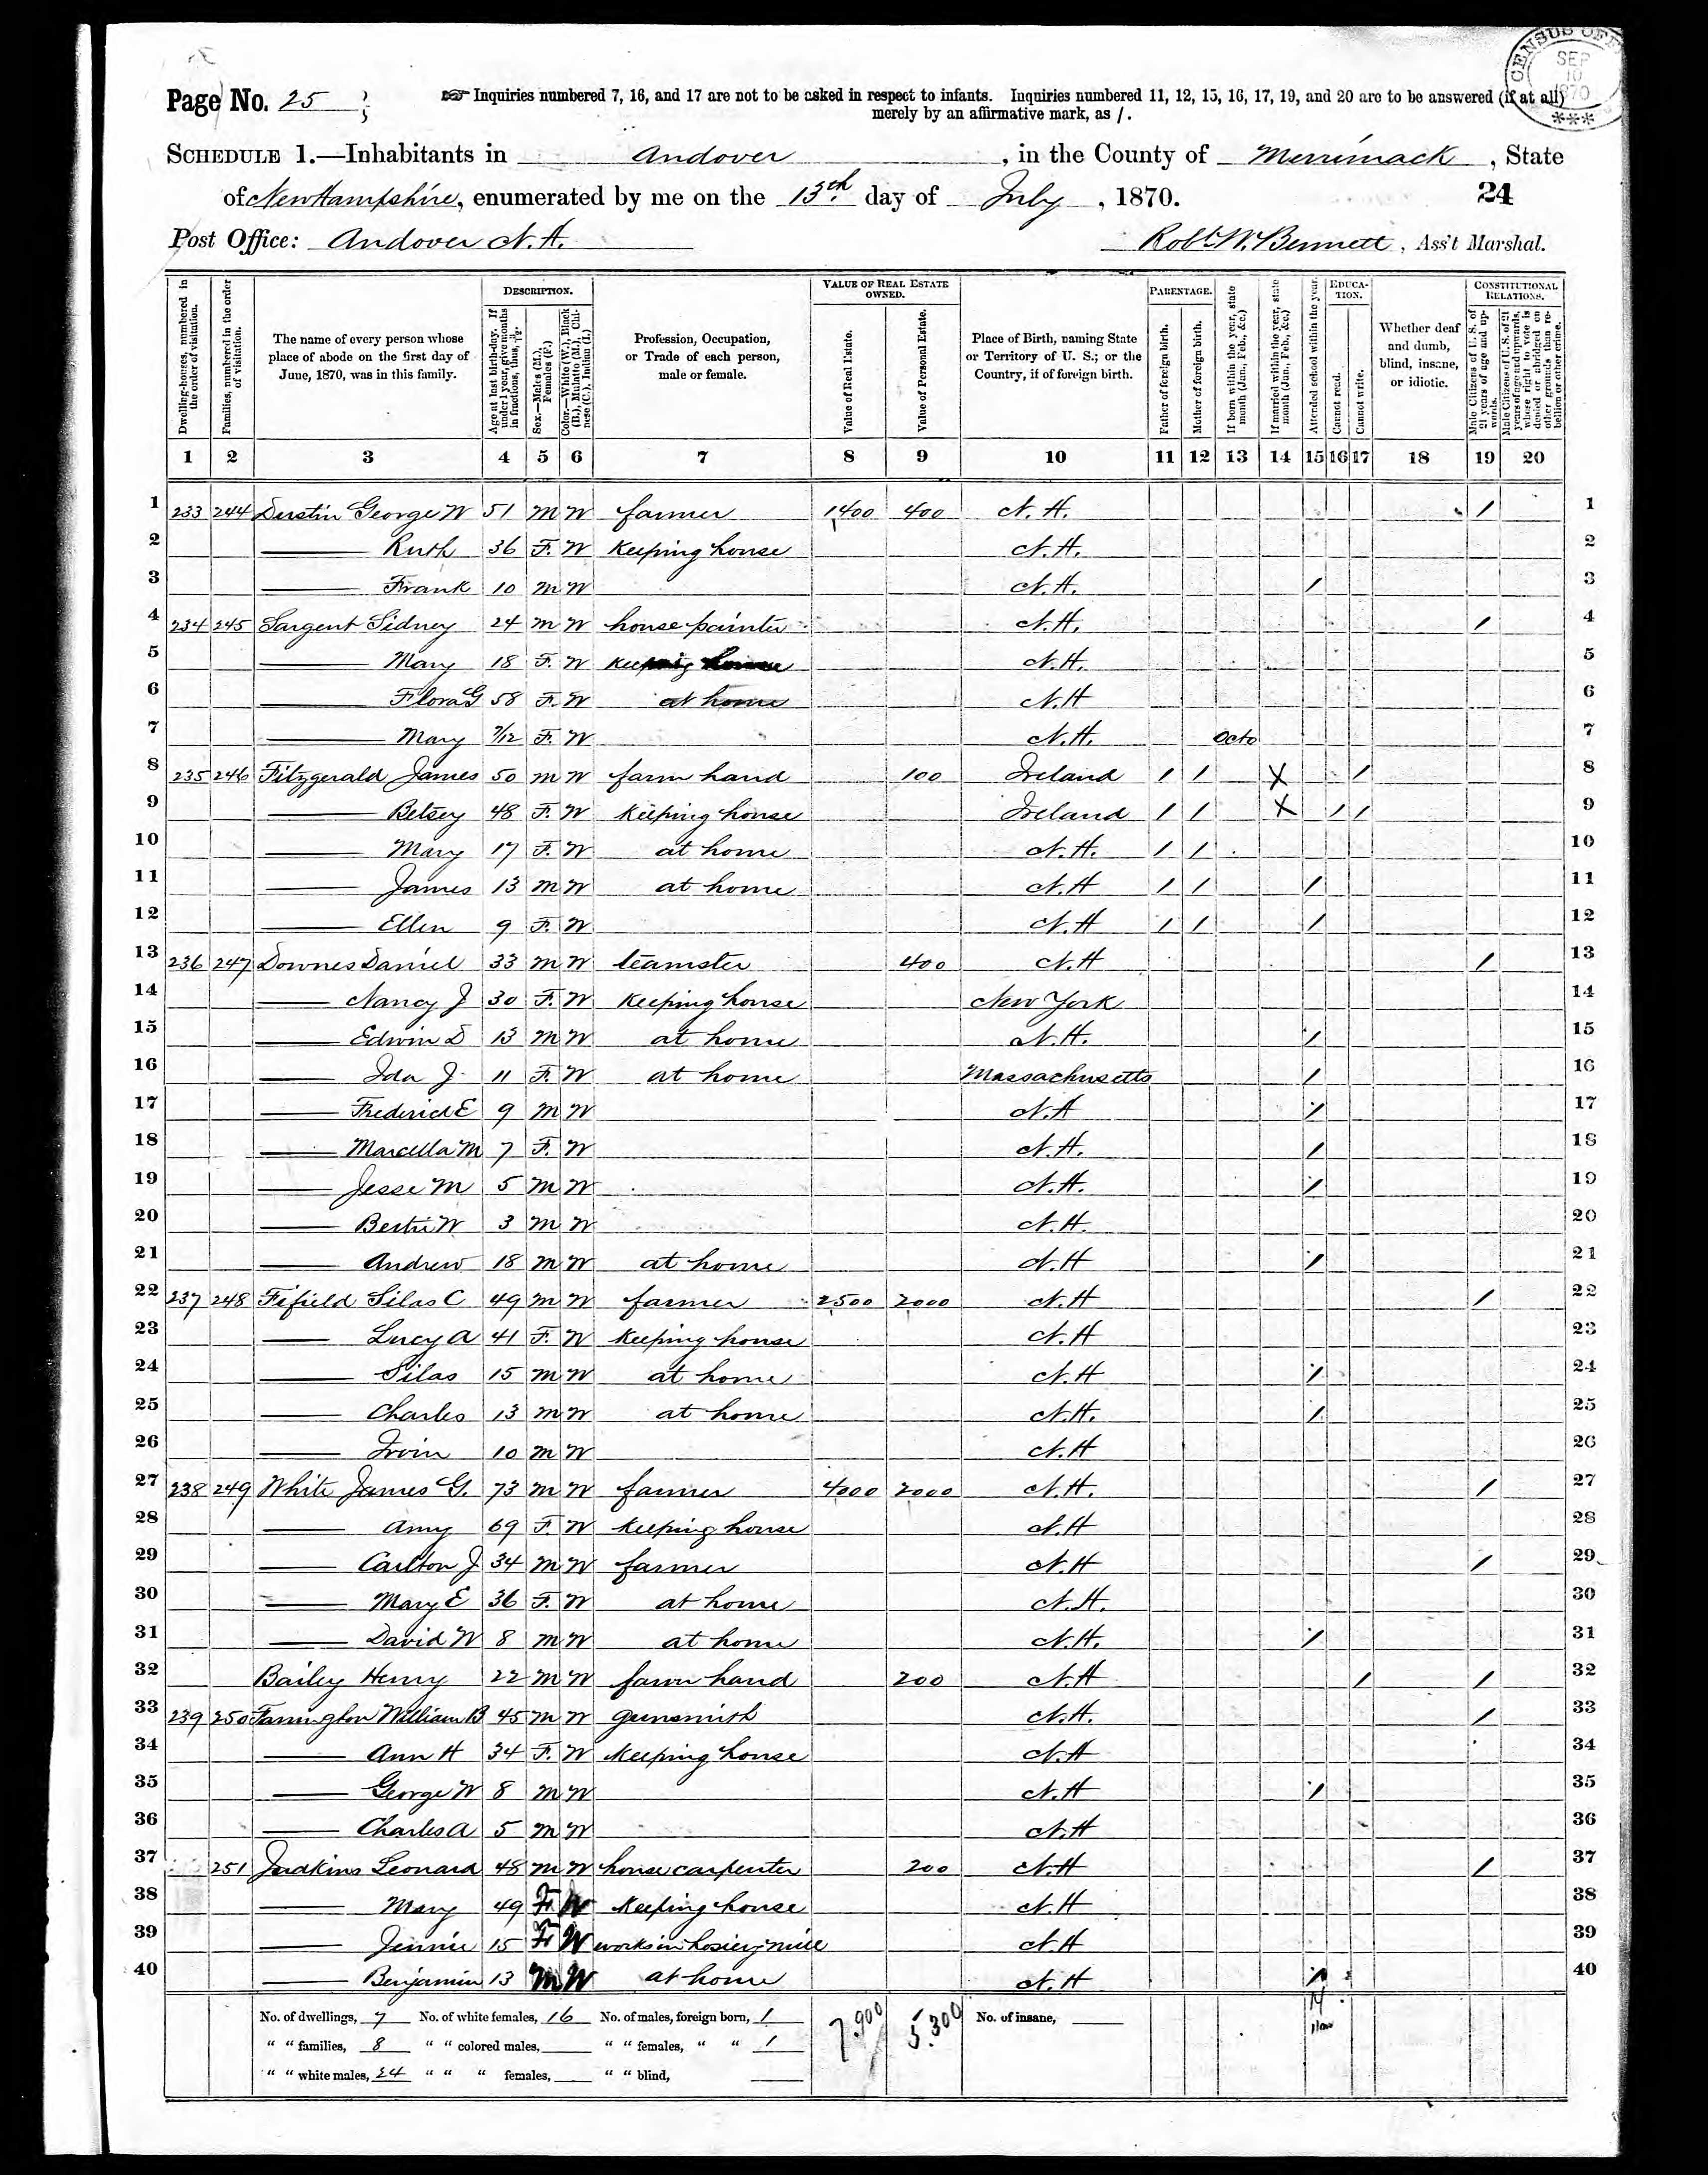 CENSUS OFF
SEP
10
1870
***
Page No. 25
Inquiries numbered 7, 16, and 17 are not to be asked in respect to infants. Inquiries numbered 11, 12, 15, 16, 17, 19, and 20 are to be answered (if at all)
merely by an affirmative mark, as /.
SCHEDULE 1.—Inhabitants in Andover, in the County of Merrimack, State
of New Hampshire, enumerated by me on the 13th day of July, 1870.
24
Post Office: Andover N.H.
Robt. W. Bennett, Ass't Marshal.
Dwelling-houses, numbered in the order of visitation.
Families, numbered in the order of visitation.
The name of every person whose place of abode on the first day of June, 1870, was in this family.
DESCRIPTION.
Age at last birth-day. If under 1 year, give months in fractions, thus, 3/12.
Sex.—Males (M.), Females (F.)
Color.—White (W.), Black (B.), Mulatto (M.), Chinese (C.), Indian (I.)
Profession, Occupation, or Trade of each person, male or female.
VALUE OF REAL ESTATE OWNED.
Value of Real Estate.
Value of Personal Estate.
Place of Birth, naming State or Territory of U. S.; or the Country, if of foreign birth.
PARENTAGE.
Father of foreign birth.
Mother of foreign birth.
If born within the year, state month (Jan., Feb., &c.)
If married within the year, state month (Jan., Feb., &c.)
Attended school within the year.
EDUCATION.
Cannot read.
Cannot write.
Whether deaf and dumb, blind, insane, or idiotic.
CONSTITUTIONAL RELATIONS.
Male Citizens of U. S. of 21 years of age and upwards.
Male Citizens of U. S. of 21 years of age and upwards, where right to vote is denied or abridged on other grounds than rebellion or other crime.
1 2 3 4 5 6 7 8 9 10 11 12 13 14 15 16 17 18 19 20
1 233 244 Durstin George W 51 M W farmer 1400 400 N.H. / 1
2 — Ruth 36 F. W Keeping house N.H. 2
3 — Frank 10 M W N.H. / 3
4 234 245 Sargent Sidney 24 M W house painter N.H. / 4
5 — Mary 18 F. W Keeping house N.H. 5
6 — Flora G 58 F. W at home N.H 6
7 — Mary 7/12 F. W N.H. Octo 7
8 235 246 Fitzgerald James 50 M W farm hand 100 Ireland / / X / 8
9 — Betsey 48 F. W Keeping house Ireland / / X / / 9
10 — Mary 17 F. W at home N.H. / / 10
11 — James 13 M W at home N.H / / / 11
12 — Ellen 9 F. W N.H / / / 12
13 236 247 Downes Daniel 33 M W teamster 400 N.H / 13
14 — Nancy J 30 F. W Keeping house New York 14
15 — Edwin D 13 M W at home N.H. / 15
16 — Ida J 11 F. W at home Massachusetts / 16
17 — Frederick E 9 M W N.H / 17
18 — Marcella M 7 F. W N.H. / 18
19 — Jesse M 5 M W N.H. / 19
20 — Bertie W 3 M W N.H. 20
21 — Andrew 18 M W at home N.H / 21
22 237 248 Fifield Silas C 49 M W farmer 2500 2000 N.H / 22
23 — Lucy A 41 F. W Keeping house N.H 23
24 — Silas 15 M W at home N.H / 24
25 — Charles 13 M W at home N.H. / 25
26 — Irvin 10 M W N.H 26
27 238 249 White James G. 73 M W farmer 4000 2000 N.H. / 27
28 — Amy 69 F. W Keeping house N.H 28
29 — Carlton J 34 M W farmer N.H / 29
30 — Mary E 36 F. W at home N.H. 30
31 — David W 8 M W at home N.H. / 31
32 Bailey Henry 22 M W farm hand 200 N.H / / 32
33 239 250 Farrington William B 45 M W gunsmith N.H. / 33
34 — Ann H 34 F. W Keeping house N.H 34
35 — George W 8 M W N.H / 35
36 — Charles A 5 M W N.H 36
37 251 Judkins Leonard 48 M W house carpenter 200 N.H / 37
38 — Mary 49 F W Keeping house N.H 38
39 — Jennie 15 F W works in hosiery mill N.H 39
40 — Benjamin 13 M W at home N.H / 40
No. of dwellings, 7 No. of white females, 16 No. of males, foreign born, 1 7.900 5.300 No. of insane,
" " families, 8 " " colored males, " " females, " " 1
" " white males, 24 " " " females, " " blind,